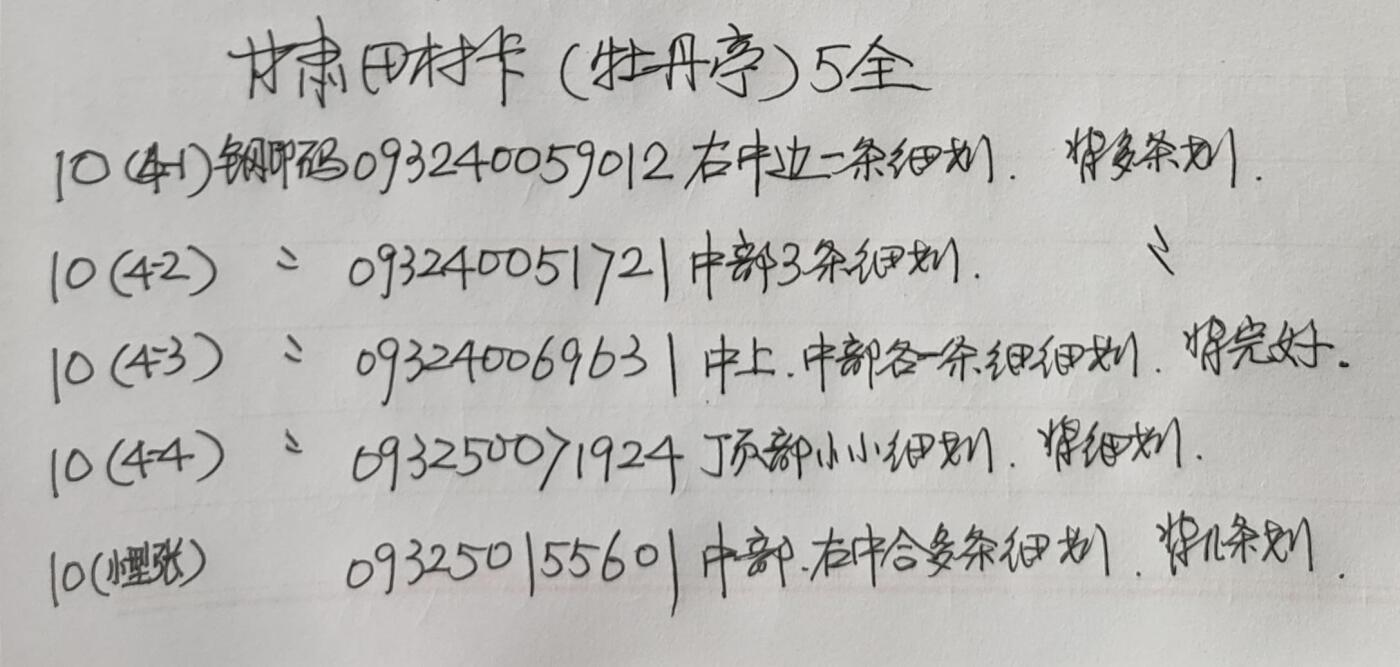 甘肃田村卡(牡丹亭)5全
10(4-1)钢印码093240059012右中边一条细划. 背多条划.
10(4-2) 〃 093240051721中部3条细划. 〃
10(4-3) 〃 093240069631中上.中部各一条细细划. 背完好。
10(4-4) 〃 093250071924顶部小小细划. 背细划.
10(小型张) 093250155601中部.右中合多条细划. 背几条划.